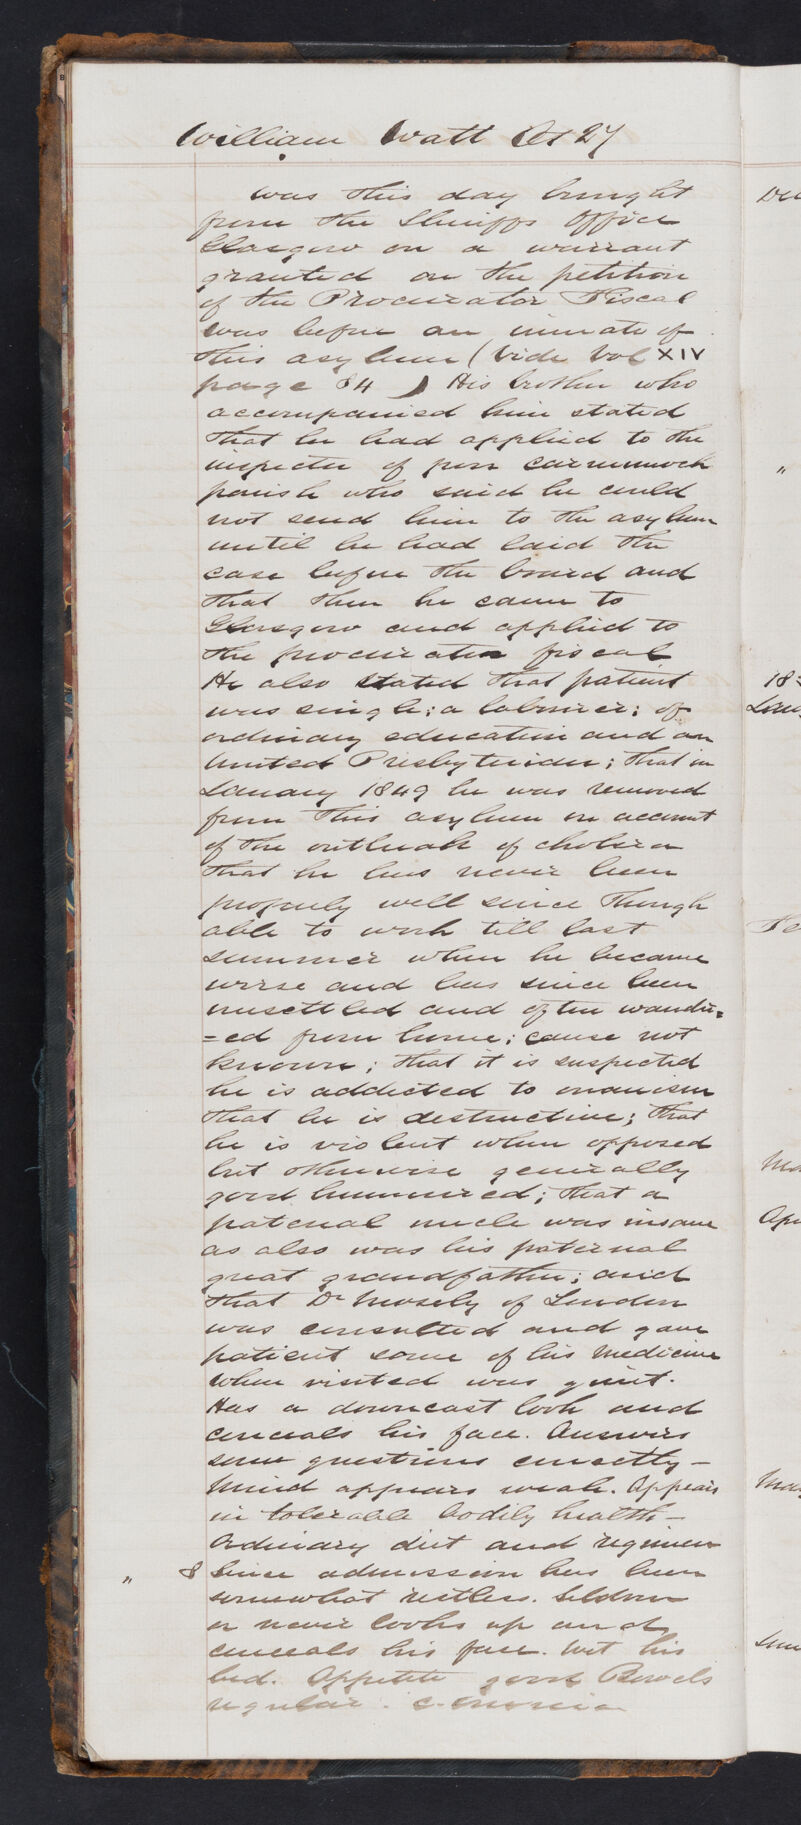 William Watt Aet 27
was this day brought
from the Sheriffs Office
Glasgow on a warrant
granted on the petition
of the Procurator Fiscal
was before an inmate of
this asylum (Vide Vol XIV
page 84) His brother who
accompanied him stated
that he had applied to the
inspector of poor Carmunnock
parish who said he could
not send him to the asylum
until he had laid the
case before the board and
that then he came to
Glasgow and applied to
the procurator fiscal
He also stated that patient
was single; a labourer; of
ordinary education and an
United Presbyterian; that in
January 1849 he was removed
from this asylum on account
of the outbreak of cholera
that he has never been
properly well since though
able to work till last
summer when he became
worse and has since been
unsettled and often wander=
=ed from home; cause not
known; that it is suspected
he is addicted to onanism
that he is destructive; that
he is violent when opposed
but otherwise generally
good humoured; that a
paternal uncle was insane
as also was his paternal
great grandfather; and
that Dr Mosely of London
was consulted and gave
patient some of his medicine
When visited was quiet.
Has a downcast look and
conceals his face. Answers
some questions correctly –
Mind appears weak. Appears
in tolerable bodily health –
Ordinary diet and regimen
" 8 Since admission has been
somewhat restless. Seldom
or never looks up and
conceals his face. Wet his
bed. Appetite good Bowels
regular.